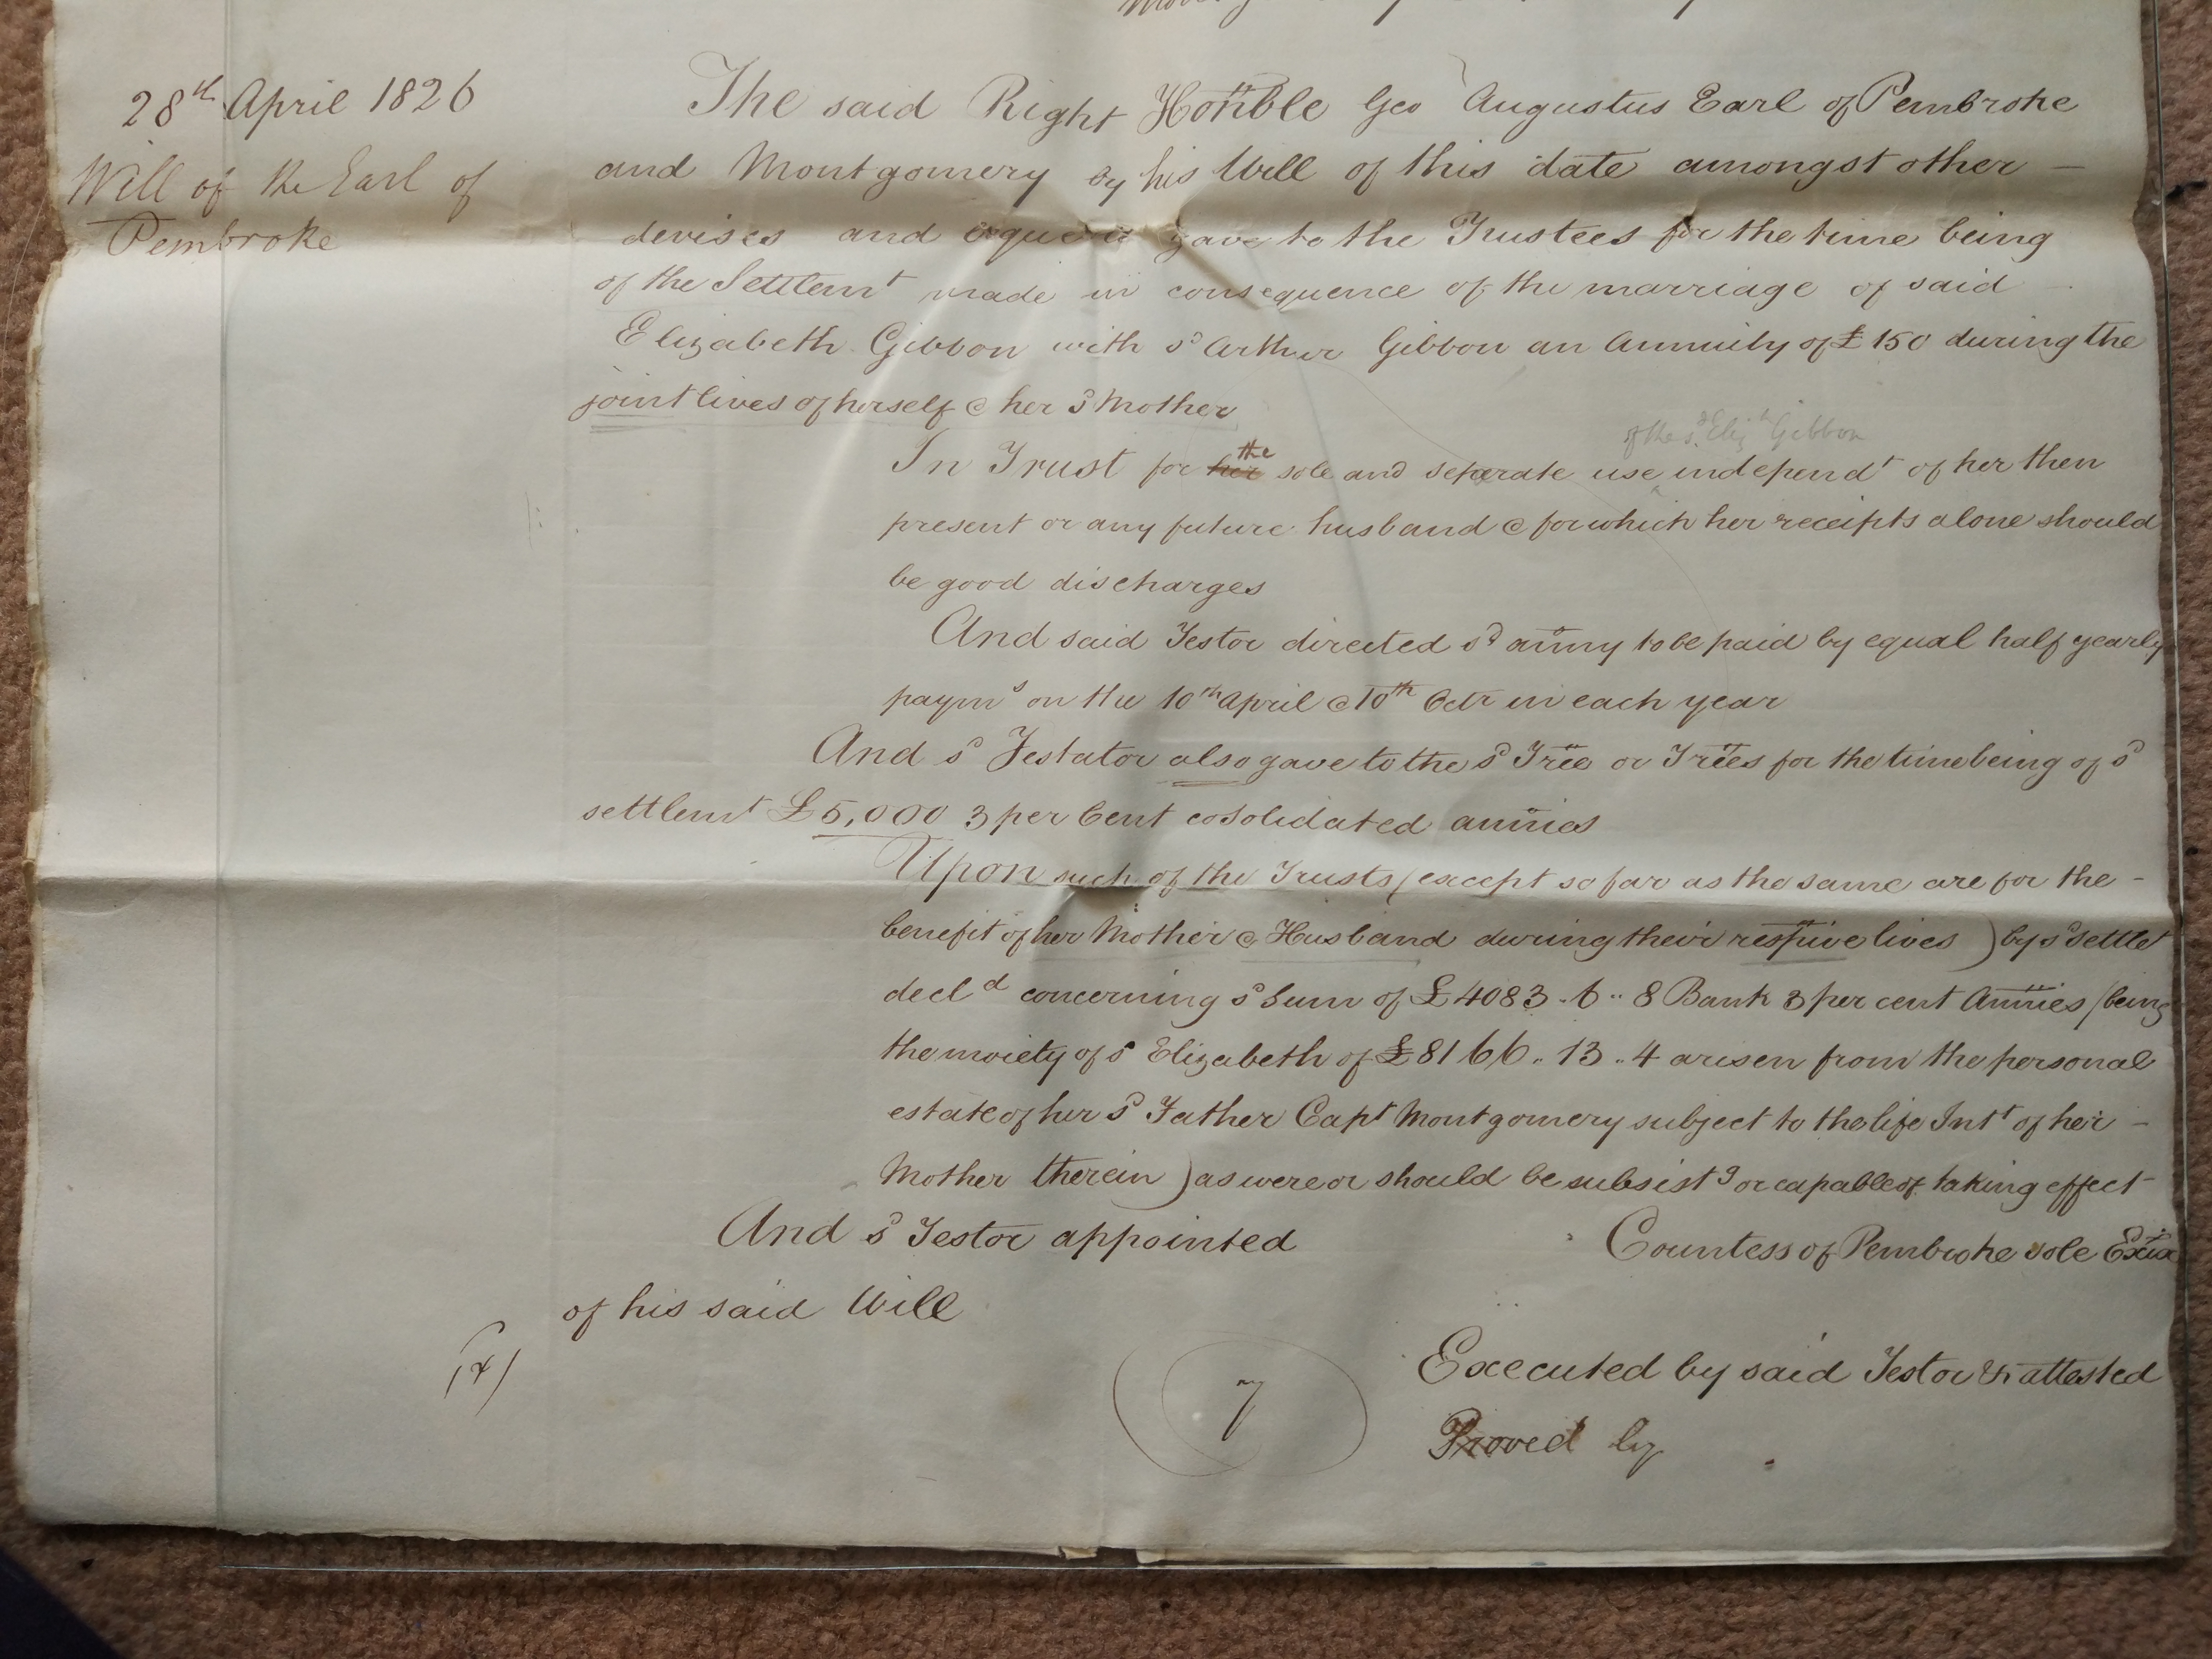 28th April 1826
Will of the Earl of
Pembroke
The said Right Honble Geo Augustus Earl of Pembroke
and Montgomery by his Will of this date amongst other —
devises and gave to the Trustees for the time being
of the Settlemt made in consequence of the marriage of said
Elizabeth Gibbon with sd Arthur Gibbon an Annuity of £150 during the
joint lives of herself & her sd Mother
of the sd Elizth Gibbon
In Trust for her the sole and seperate use independt of her then
present or any future husband & for which her receipts alone should
be good discharges
And said Testor directed sd anny to be paid by equal half yearly
payms on the 10th April & 10th Octr in each year
And sd Testator also gave to the sd Tree or Trees for the time being of sd
settlemt £5,000 3 per Cent cosolidated annies
Upon such of the Trusts (except so far as the same are for the -
benefit of her Mother & Husband during their respive lives) by sd settlet
decld concerning sd Sum of £4083 .. 6 .. 8 Bank 3 per cent Annies (being
the moiety of sd Elizabeth of £8166 .. 13 .. 4 arisen from the personal
estate of her sd Father Capt Montgomery subject to the life Intt of her -
Mother therein) as were or should be subsistg or capable of taking effect
And sd Testor appointed Countess of Pembroke sole Exix
of his said Will
(4)
7
Executed by said Testor & attested
Proved by